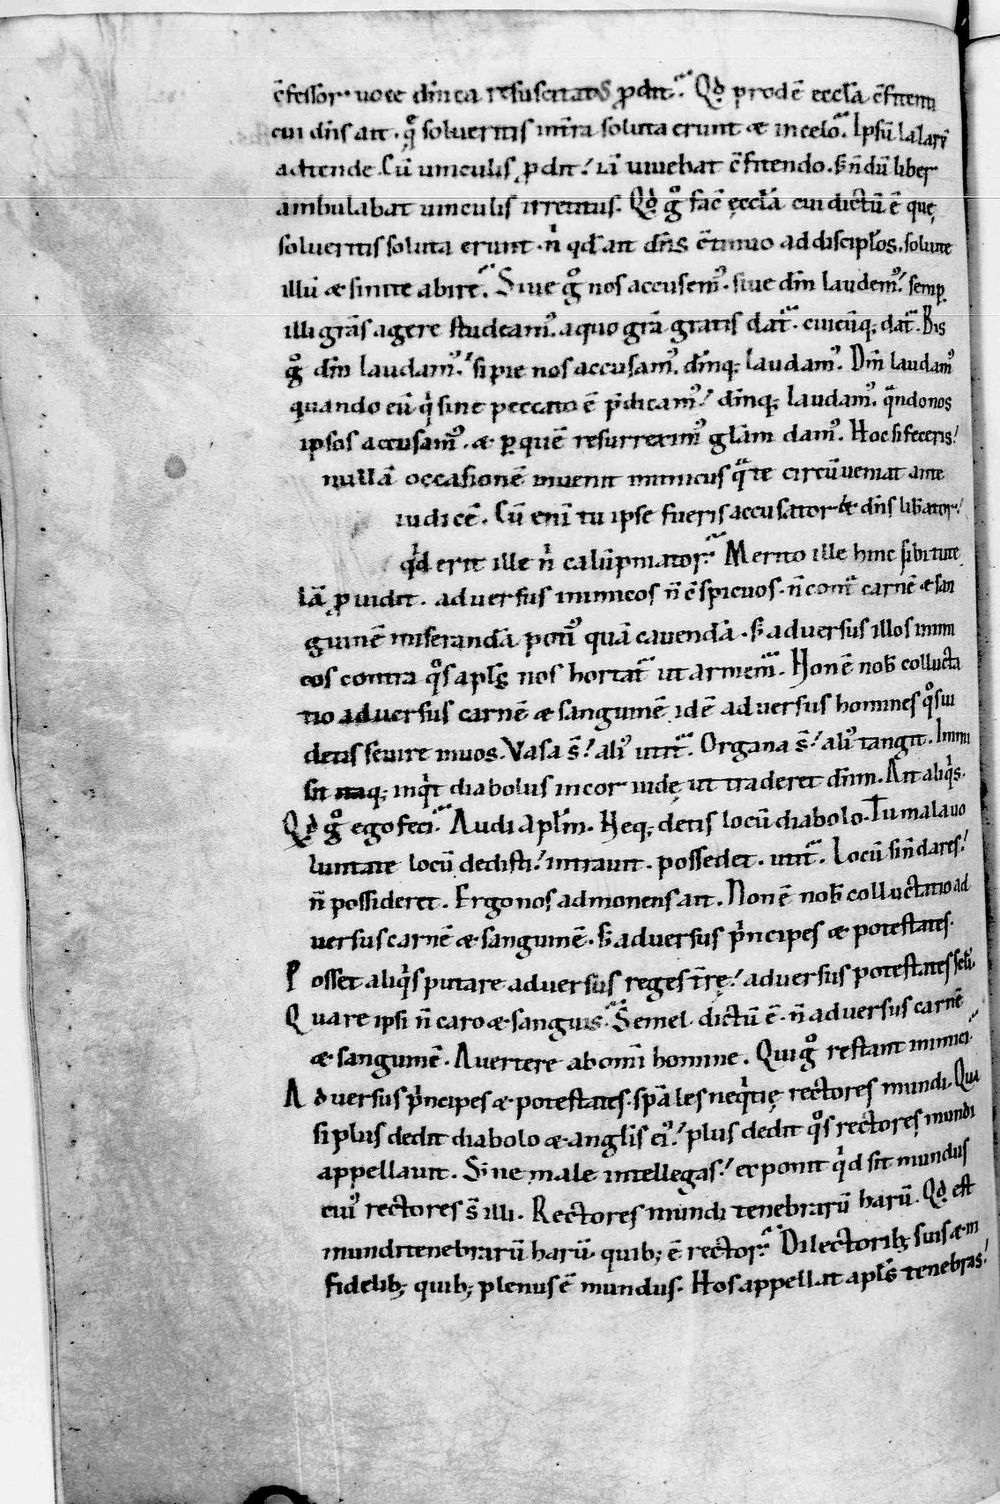 c̄fessor· uoce dn̄ica resuscitatus ꝓdit. Qd̄ prodē ecclā c̄fitenti
cui dn̄s ait. q̄ solueritis in tr̄a soluta erunt & in celo. Ipsū lazarū
adtende. Cū uinculis ꝓdit! iā uiuebat c̄fitendo. s; n̄dū liber
ambulabat uinculis irretitus. Qd̄ gͦ fac̄ ęcclā cui dictū ē quę
solueritis soluta erunt· n̄ qd̄ ait dn̄s c̄tinuo ad discipłos. soluite
illū & sinite abire. Siue gͦ nos accusem᷒· siue dn̄m laudem᷒! semp̱
illi grā̄s agere studeam᷒. a quo grā gratis dat᷑. cuicūq; dat᷑. Bis
gͦ dn̄m laudam᷒! si pie nos accusam᷒. dn̄mq; laudam᷒. Dn̄m laudam᷒
quando eū qͥ sine peccato ē p̄dicam᷒! dn̄mq; laudam᷒. qᷓndo nos
ipsos accusam᷒. & ꝑ quē resurrexim᷒ glām dam᷒. Hoc si feceris!
nullā occasionē inuenit inimicus qᷓ te circūueniat ante
iudicē. Cū enī tu ipse fueris accusator & dn̄s lib̄ator!
qͥd erit ille n̄ calūpniator. Merito ille hinc sibi tute
lā ꝓuidit. aduersus inimicos n̄ c̄spicuos· n̄ contᷓ carnē & san
guinē miserandā poti᷒ quā cauendā· s; aduersus illos inimi
cos contra qͦs apłs nos hortat᷑ ut armem᷑. Non ē nob̄ collucta
tio aduersus carnē & sanguinē idē aduersus homines qͦs ui
detis seuire in uos. Vasa s̄! ali᷒ utit᷑. Organa s̄! ali᷒ tangit. Immi
sit naq; inqͥt diabolus in cor iudę ut traderet dn̄m. Ait aliqͥs.
Qd̄ gͦ ego feci. Audi apłm. Neq; detis locū diabolo. Tu mala uo
luntate locū dedisti! intrauit. possedet. utit᷑. Locū si n̄ dares!
n̄ possideret. Ergo nos admonens ait. Non ē nob̄ colluctatio ad
uersus carnē & sanguinē. s; aduersus pͥncipes & potestates.
Posset aliqͥs putare aduersus reges tr̄ę! aduersus potestates sc̄li.
Quare ipsi n̄ caro & sanguis. Semel dictū ē. n̄ aduersus carnē
& sanguinē. Auertere ab omī homine. Qui gͦ restant inimici.
Aduersus pͥncipes & potestates. spā les neqͥtię rectores mundi. Qua
si plus dedit diabolo & anglis ei᷒! plus dedit qͦs rectores mundi
appellauit. Si ne male intellegas! exponit qͥd sit mundus
cui᷒ rectores s̄ illi. Rectores mundi tenebrarū harū. Qd̄ est
mundi tenebrarū harū. quib; ē rector. Dilectorib; suis & in
fidelib; quib; plenus ē mundus. Hos appellat apłs tenebras!